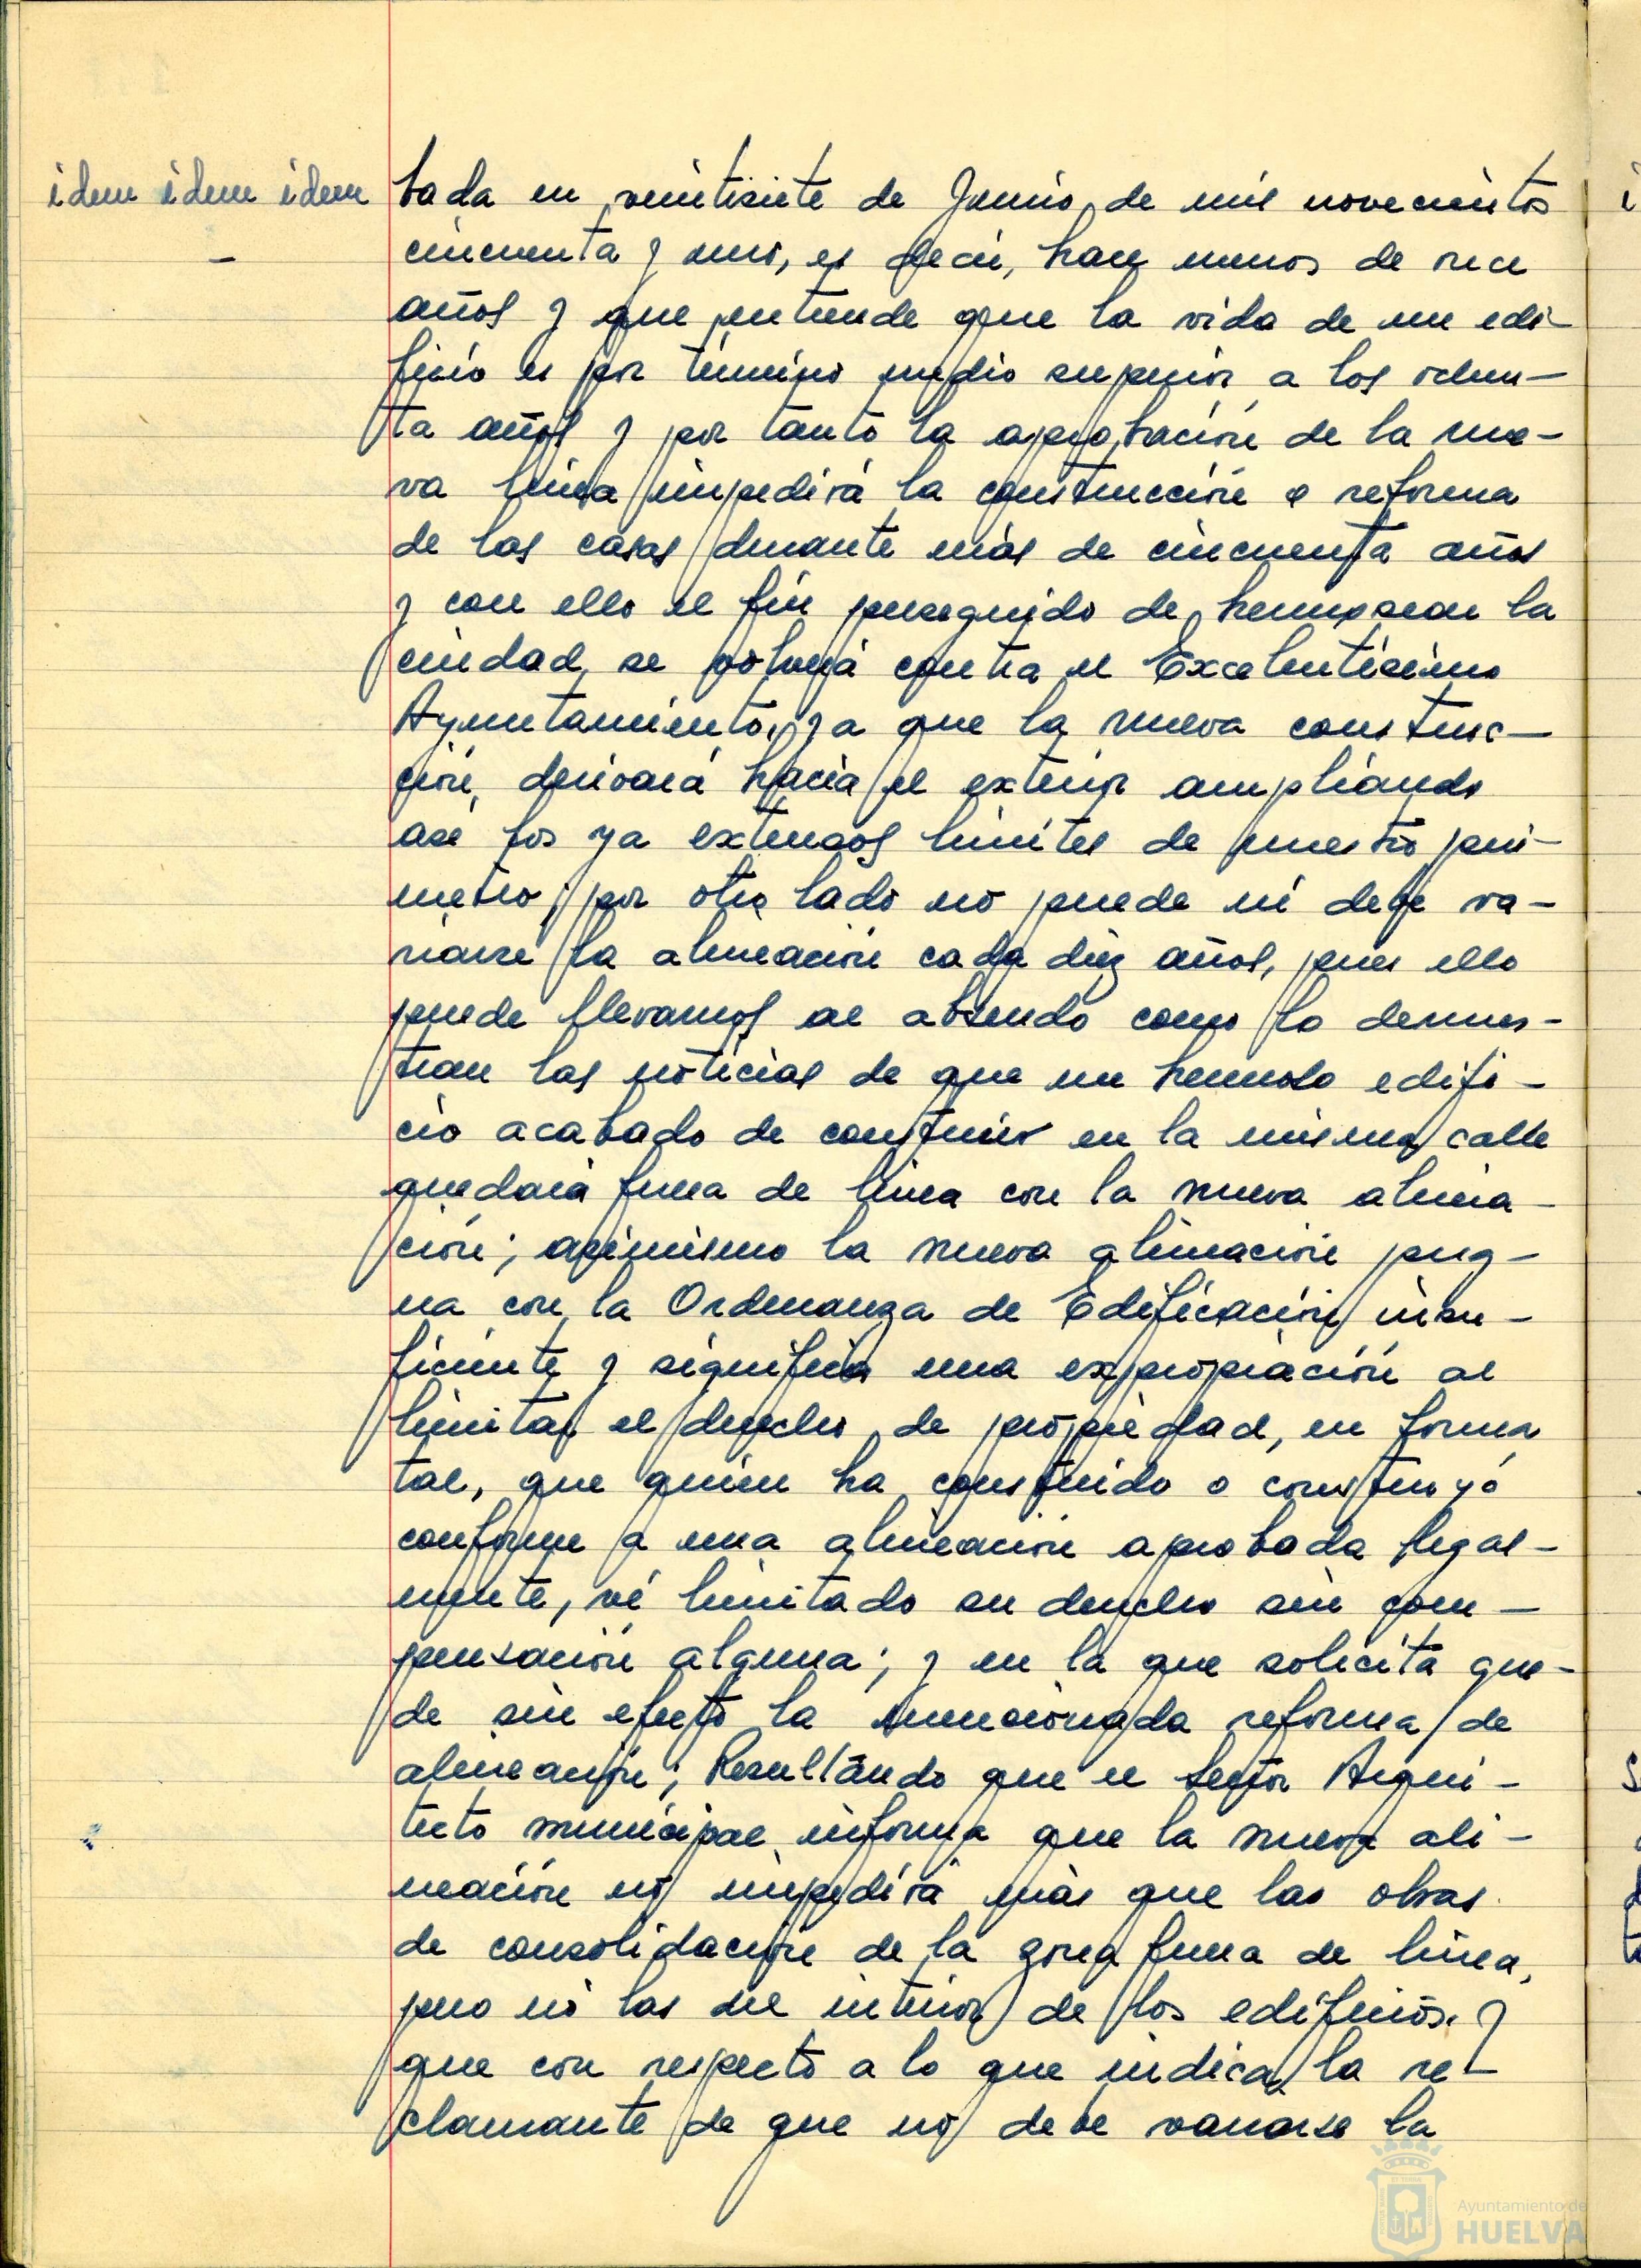 idem idem idem
bada en veintisiete de Junio de mil novecientos
cincuenta y uno, es decir, hace menos de once
años y que entiende que la vida de un edi-
ficio es por término medio superior a los ochen-
ta años y por tanto la aprobación de la nue-
va línea impedirá la construcción o reforma
de las casas durante más de cincuenta años
y con ello el fin perseguido de hermosear la
ciudad, se volverá contra el Excelentísimo
Ayuntamiento, ya que la nueva construc-
ción, derivará hacia el exterior ampliando
asi los ya extensos límites de nuestro perí-
metro; por otro lado no puede ni debe va-
riarse la alineación cada diez años, pues ello
puede llevarnos al absurdo como lo demues-
tran las noticias de que un hermoso edifi-
cio acabado de construir en la misma calle
quedará fuera de línea con la nueva alinea-
ción; asimismo la nueva alineación pug-
na con la Ordenanza de Edificación insu-
ficiente y significa una expropiación al
limitar el derecho de propiedad, en forma
tal, que quien ha construido o construyó
conforme a una alineación aprobada legal-
mente, vé limitado su derecho sin com-
pensación alguna; y en la que solicita que-
de sin efecto la mencionada reforma de
alineación; Resultando que el Señor Arqui-
tecto municipal informa que la nueva ali-
neación no impedirá más que las obras
de consolidación de la zona fuera de línea,
pero no las del interior de los edificios. Y
que con respecto a lo que indica la re-
clamante de que no debe variarse la
Ayuntamiento de
HUELVA